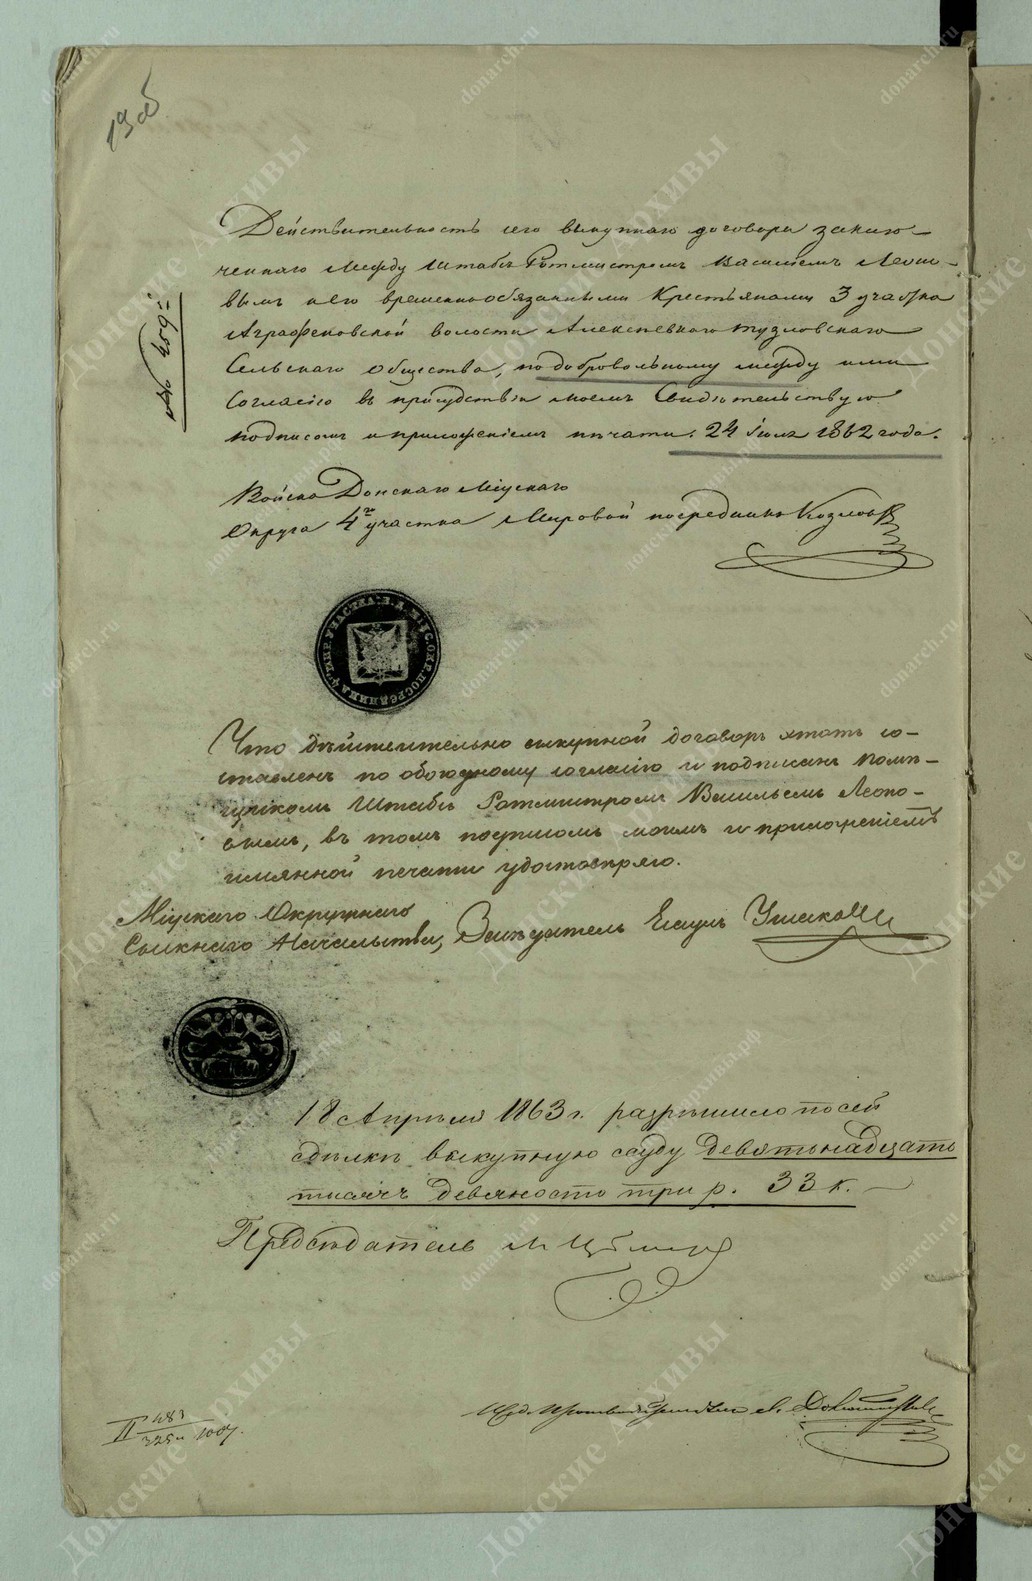 19 об
№ 459й
Действительность сего выкупнаго договора заклю-
ченнаго между Штабсъ Ротмистромъ Василіемъ Леоно-
вымъ и его временнообязанными Крестьянами 3 участка
Аграфеновской волости Алексѣевкаго тузловскаго
Сельскаго общества, по добровольному между ими
Согласію въ присудствіи моемъ Свидѣтельствую
подписомъ и приложеніемъ печати. 24 Іюля 1862 года.
Войска Донскаго Міускаго
Округа 4го участка Мировой посредникъ Козловъ
Что дѣйствительно выкупной договоръ этотъ со-
ставленъ по обоюдному согласію и подписанъ помѣ-
щикомъ Штабсъ Ротмистромъ Васильемъ Леоно-
вымъ, въ томъ подписомъ моимъ и приложеніемъ
имянной печати удостовѣряю.
Міускаго Окружнаго
Сыскнаго Начальства, Засѣдатель Есаулъ Ушаковъ
18 Апрѣля 1863 г. разрѣшило по сей
сдѣлкѣ выкупную ссуду девятьнадцать
тысячъ девяносто три р. 33 к.
Предсѣдатель
II 483